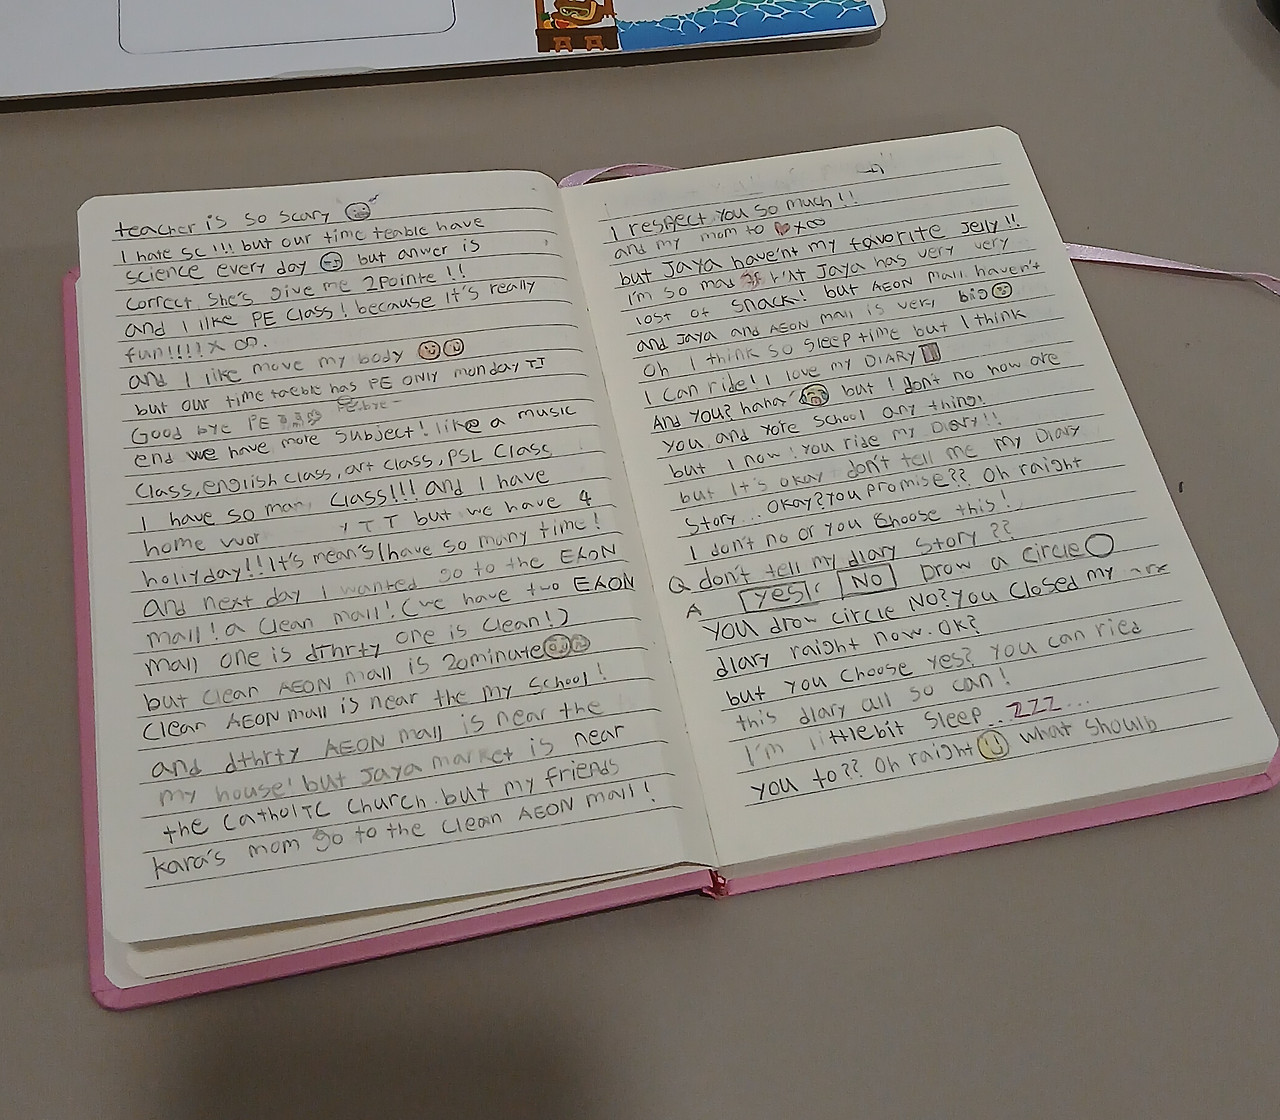 teacher is so scary
I hate sc !!! but our time teable have
science every day but anwer is
correct, she's give me 2pointe !!
and I like PE class! because it's really
fun!!!! x ∞.
and I like move my body
but our time taeble has PE ONLY monday TT
Good bye PE
end we have more subject! like a music
class, english class, art class, PSL class
I have so man class!!! and I have
home wor y T T but we have 4
holiyday!! It's mean's I have so many time!
and next day I wanted go to the EAON
mall! a clean mall! (we have two EAON
mall one is dthrty one is clean!)
but clean AEON mall is 20minute
clean AEON mall is near the my school!
and dthrty AEON mall is near the
my house! but Jaya market is near
the catholic church. but my friends
kara's mom go to the clean AEON mall!
I respect you so much!!
and my mom to ♥x∞
but Jaya haven't my favorite jelly!!
I'm so mad Jaya has very very
lost of snack! but AEON mall haven't
and Jaya and AEON mall is very big
Oh I think so sleep time but I think
I can ride! I love my DIARY
And you? haha but I don't no how are
you and yore school any thing!
but I now! you ride my Diary!!
but It's okay don't tell me my Diary
story... Okay? you promise?? Oh raight
I don't no or you choose this!
Q don't tell my diary story ??
A yes! NO Drow a circle
you drow circle NO? you closed my
diary raight now. OK?
but you choose yes? you can ried
this diary all so can!
I'm littlebit sleep...zzz...
you to?? Oh raight what should